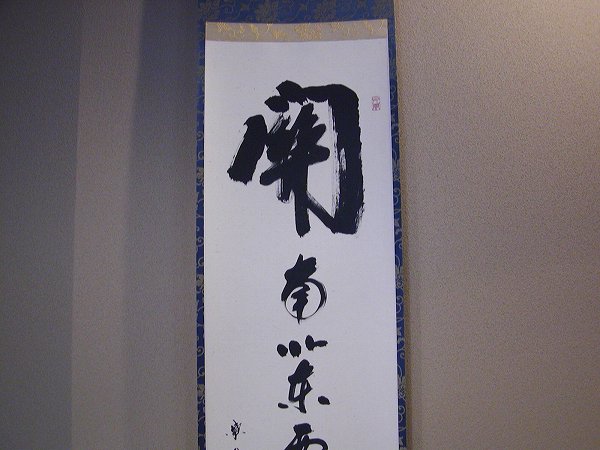 関南北東西